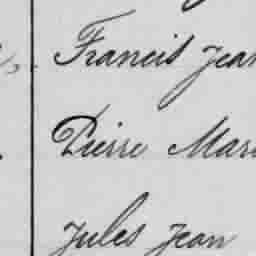 Francis Jean
Pierre Mari
Jules Jean